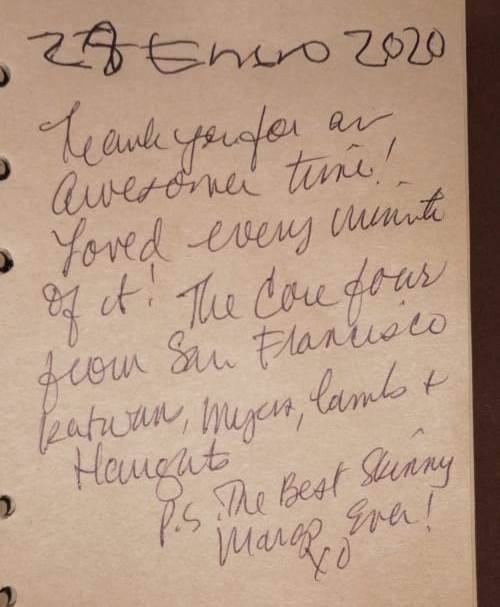 28 Enero 2020
Thank you for an
awesome time!
Loved every minute
of it! The Core four
from San Francisco
Katwan, Myers, Lambs +
Haughts
P.S. The Best Skinny
Margs Ever!
XO